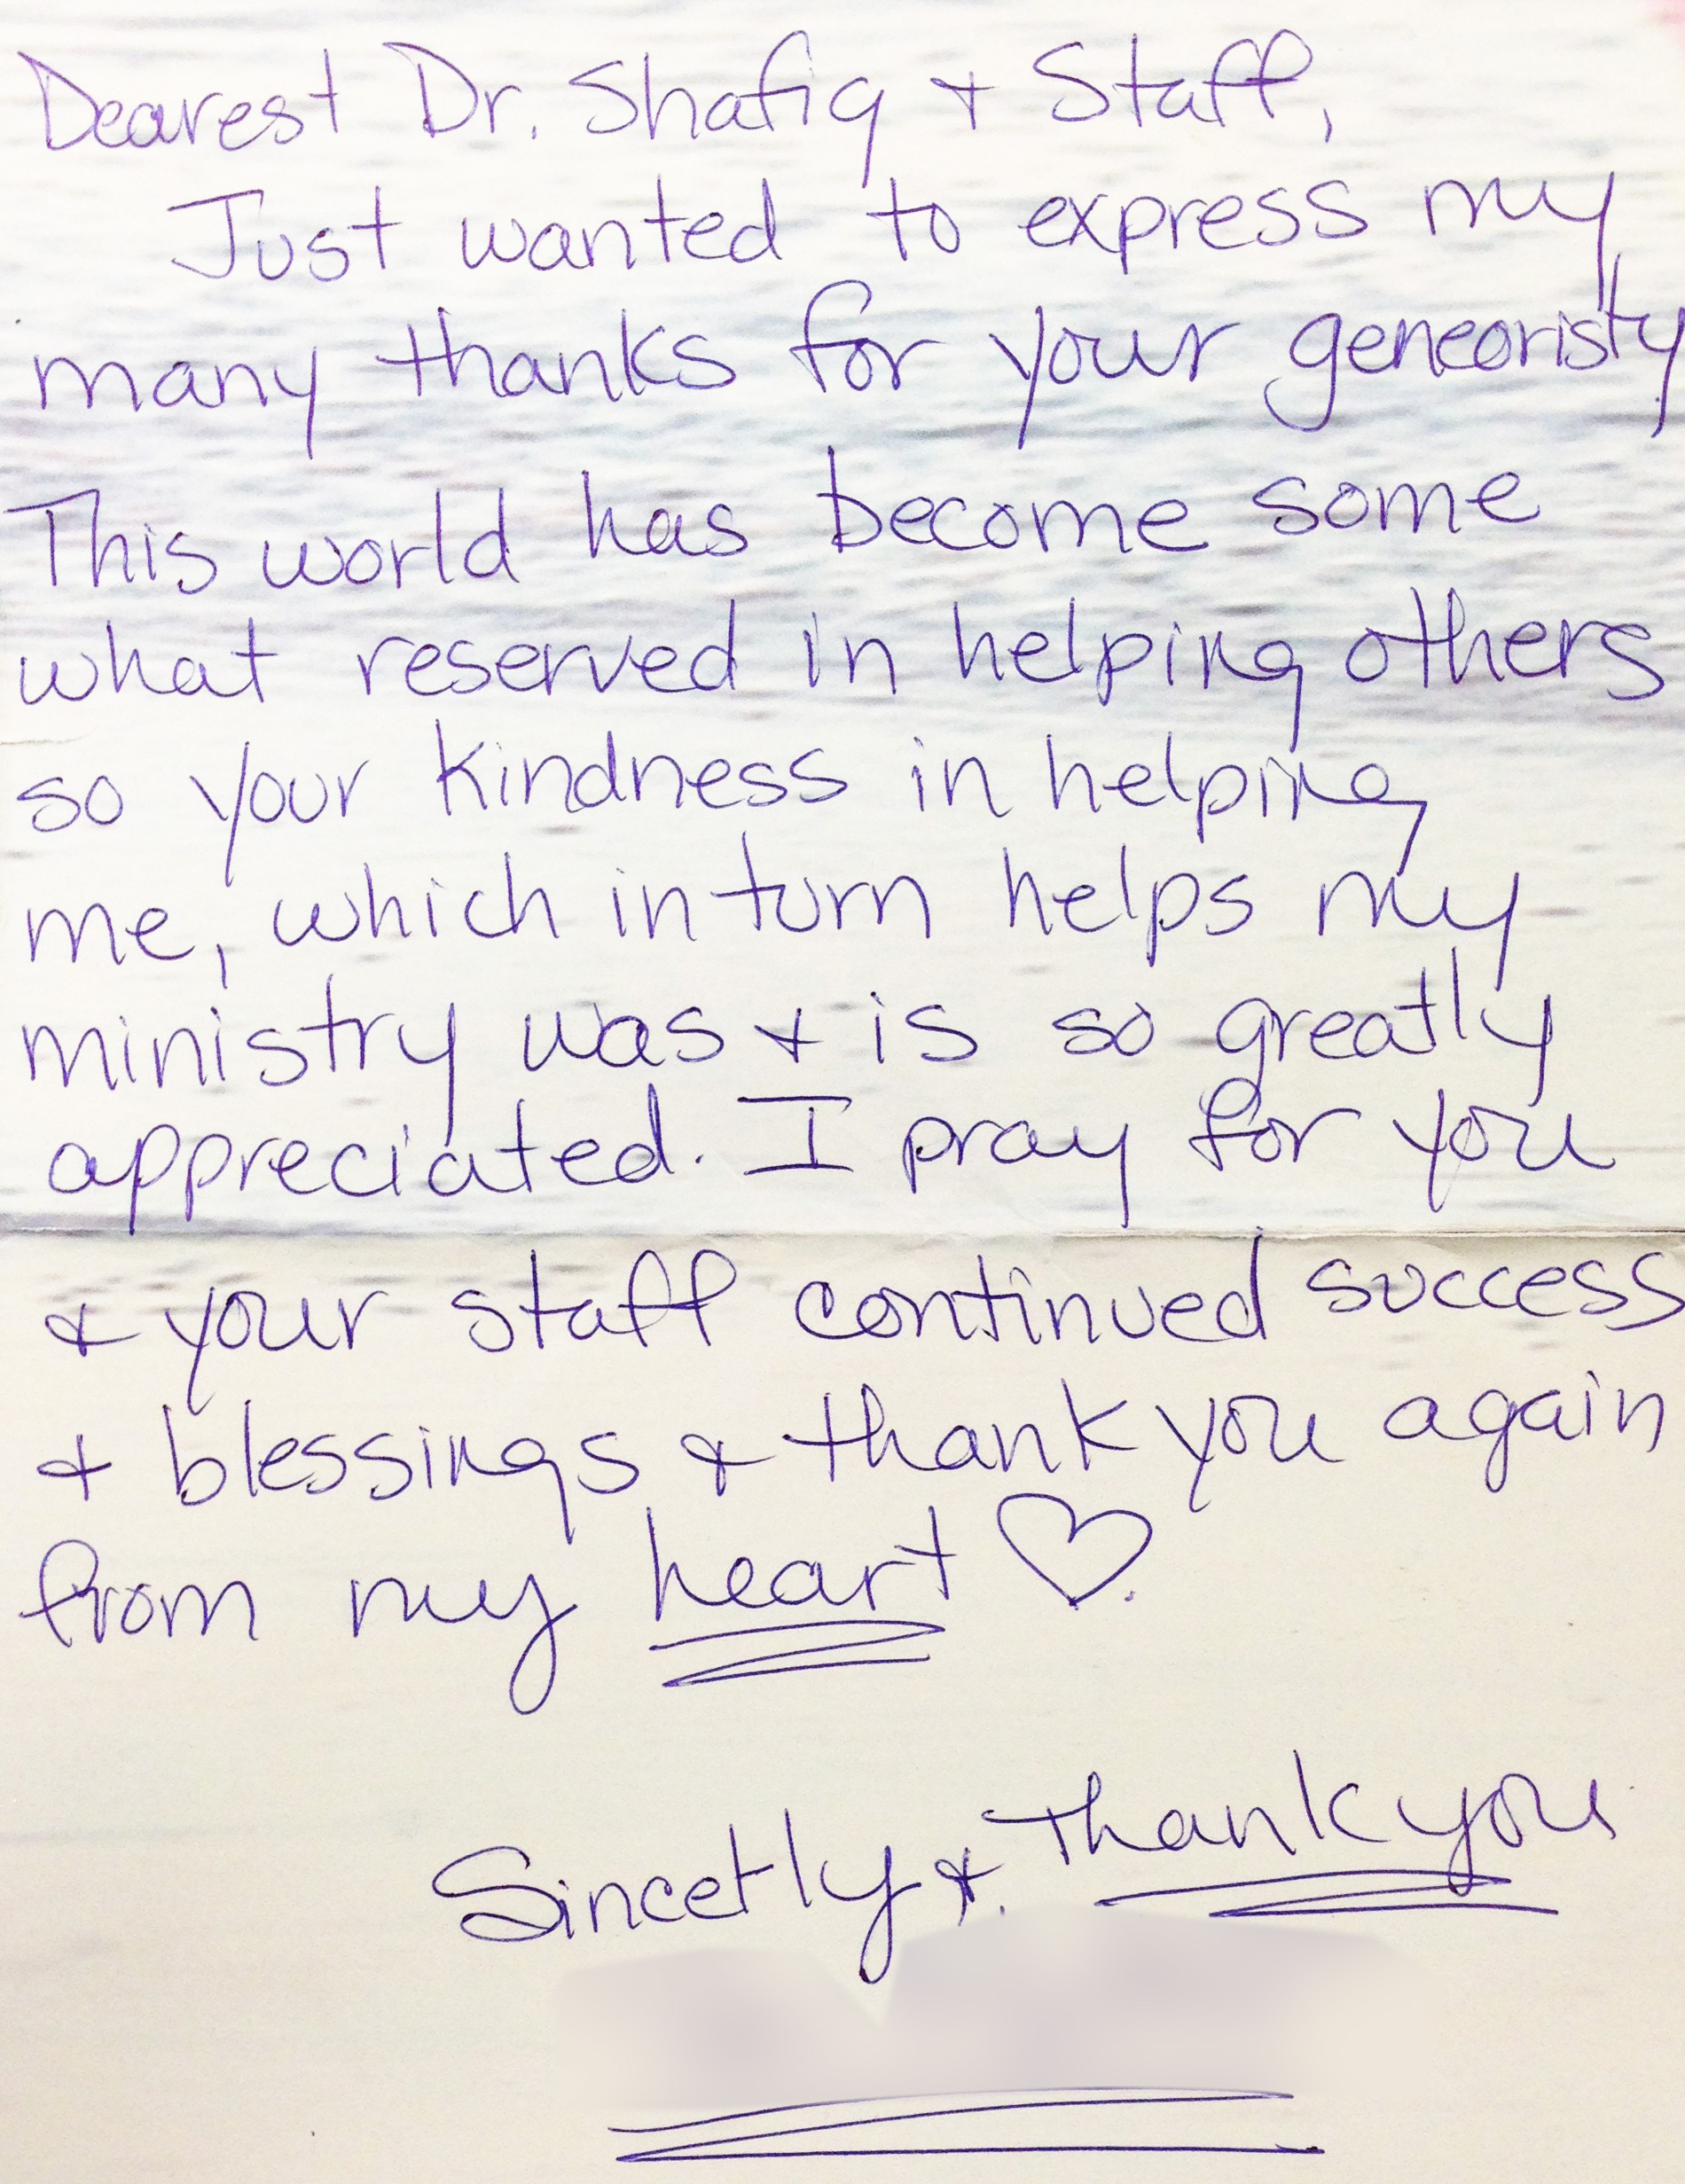 Dearest Dr. Shafiq + Staff,
Just wanted to express my
many thanks for your geneoristy
This world has become some
what reserved in helping others
so your kindness in helping
me, which in turn helps my
ministry was + is so greatly
appreciated. I pray for you
& your staff continued success
+ blessings & thank you again
from my heart ♡.
Sincetly & Thank you